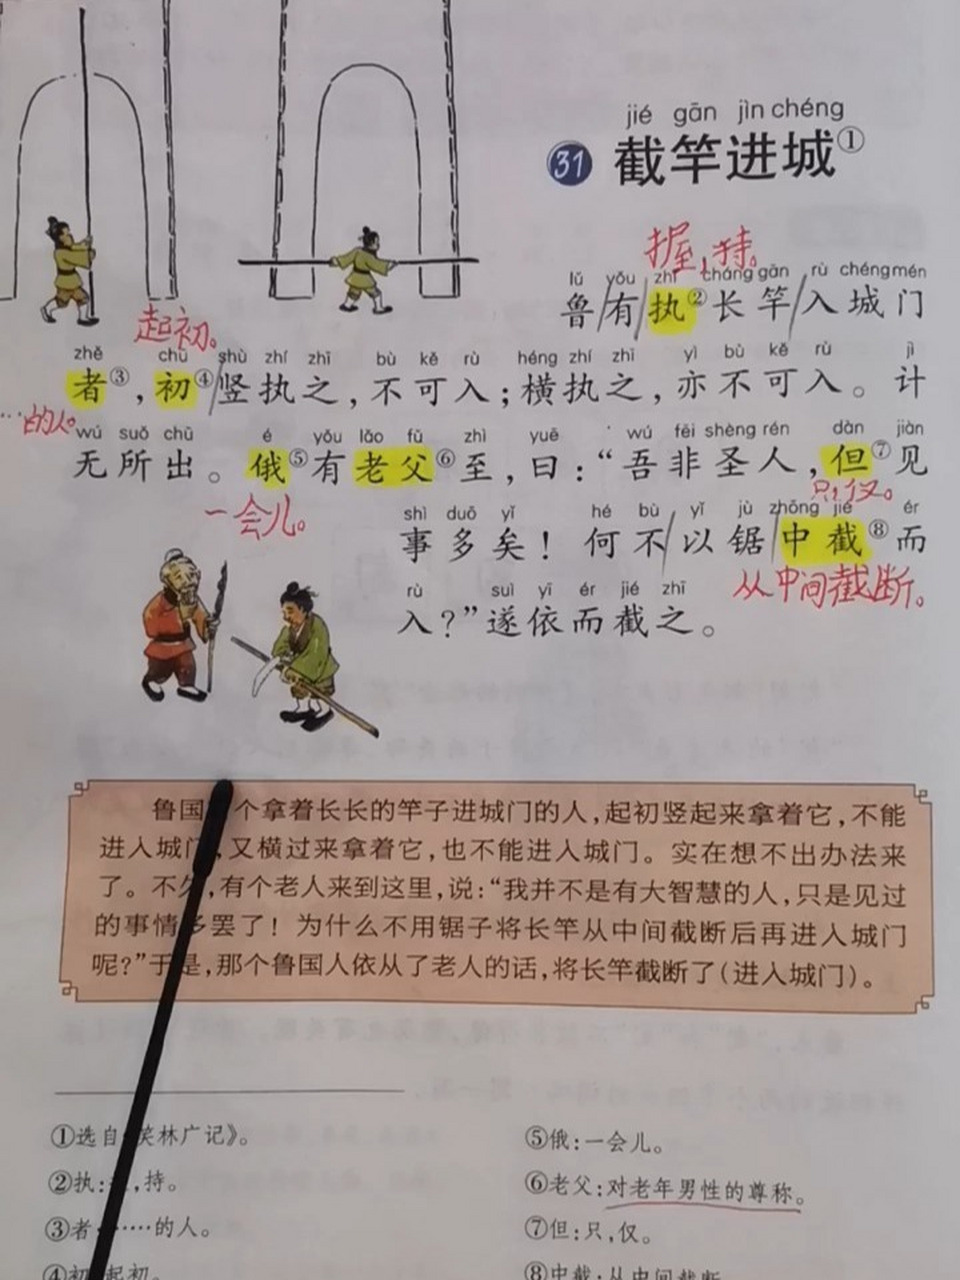 jié gān jìn chéng
31 截竿进城①
握，持。
lǔ yǒu zhí cháng gān rù chéng mén
鲁/有/执②长竿/入城门
起初。
zhě chū shù zhí zhī bù kě rù héng zhí zhī yì bù kě rù jì
者③，初④/竖执之，不可入；横执之，亦不可入。计
…的人。
wú suǒ chū é yǒu lǎo fǔ zhì yuē wú fēi shèng rén dàn jiàn
无所出。俄⑤有老父⑥至，曰：“吾非圣人，但⑦见
一会儿。
只，仅。
shì duō yǐ hé bù yǐ jù zhōng jié ér
事多矣！何不/以锯/中截⑧而
从中间截断。
rù suì yī ér jié zhī
入？”遂依而截之。
鲁国个拿着长长的竿子进城门的人，起初竖起来拿着它，不能
进入城门，又横过来拿着它，也不能进入城门。实在想不出办法来
了。不久，有个老人来到这里，说：“我并不是有大智慧的人，只是见过
的事情多罢了！为什么不用锯子将长竿从中间截断后再进入城门
呢？”于是，那个鲁国人依从了老人的话，将长竿截断了（进入城门）。
①选自笑林广记》。
②执：，持。
③者……的人。
④初起初。
⑤俄：一会儿。
⑥老父：对老年男性的尊称。
⑦但：只，仅。
⑧中截：从中间截断